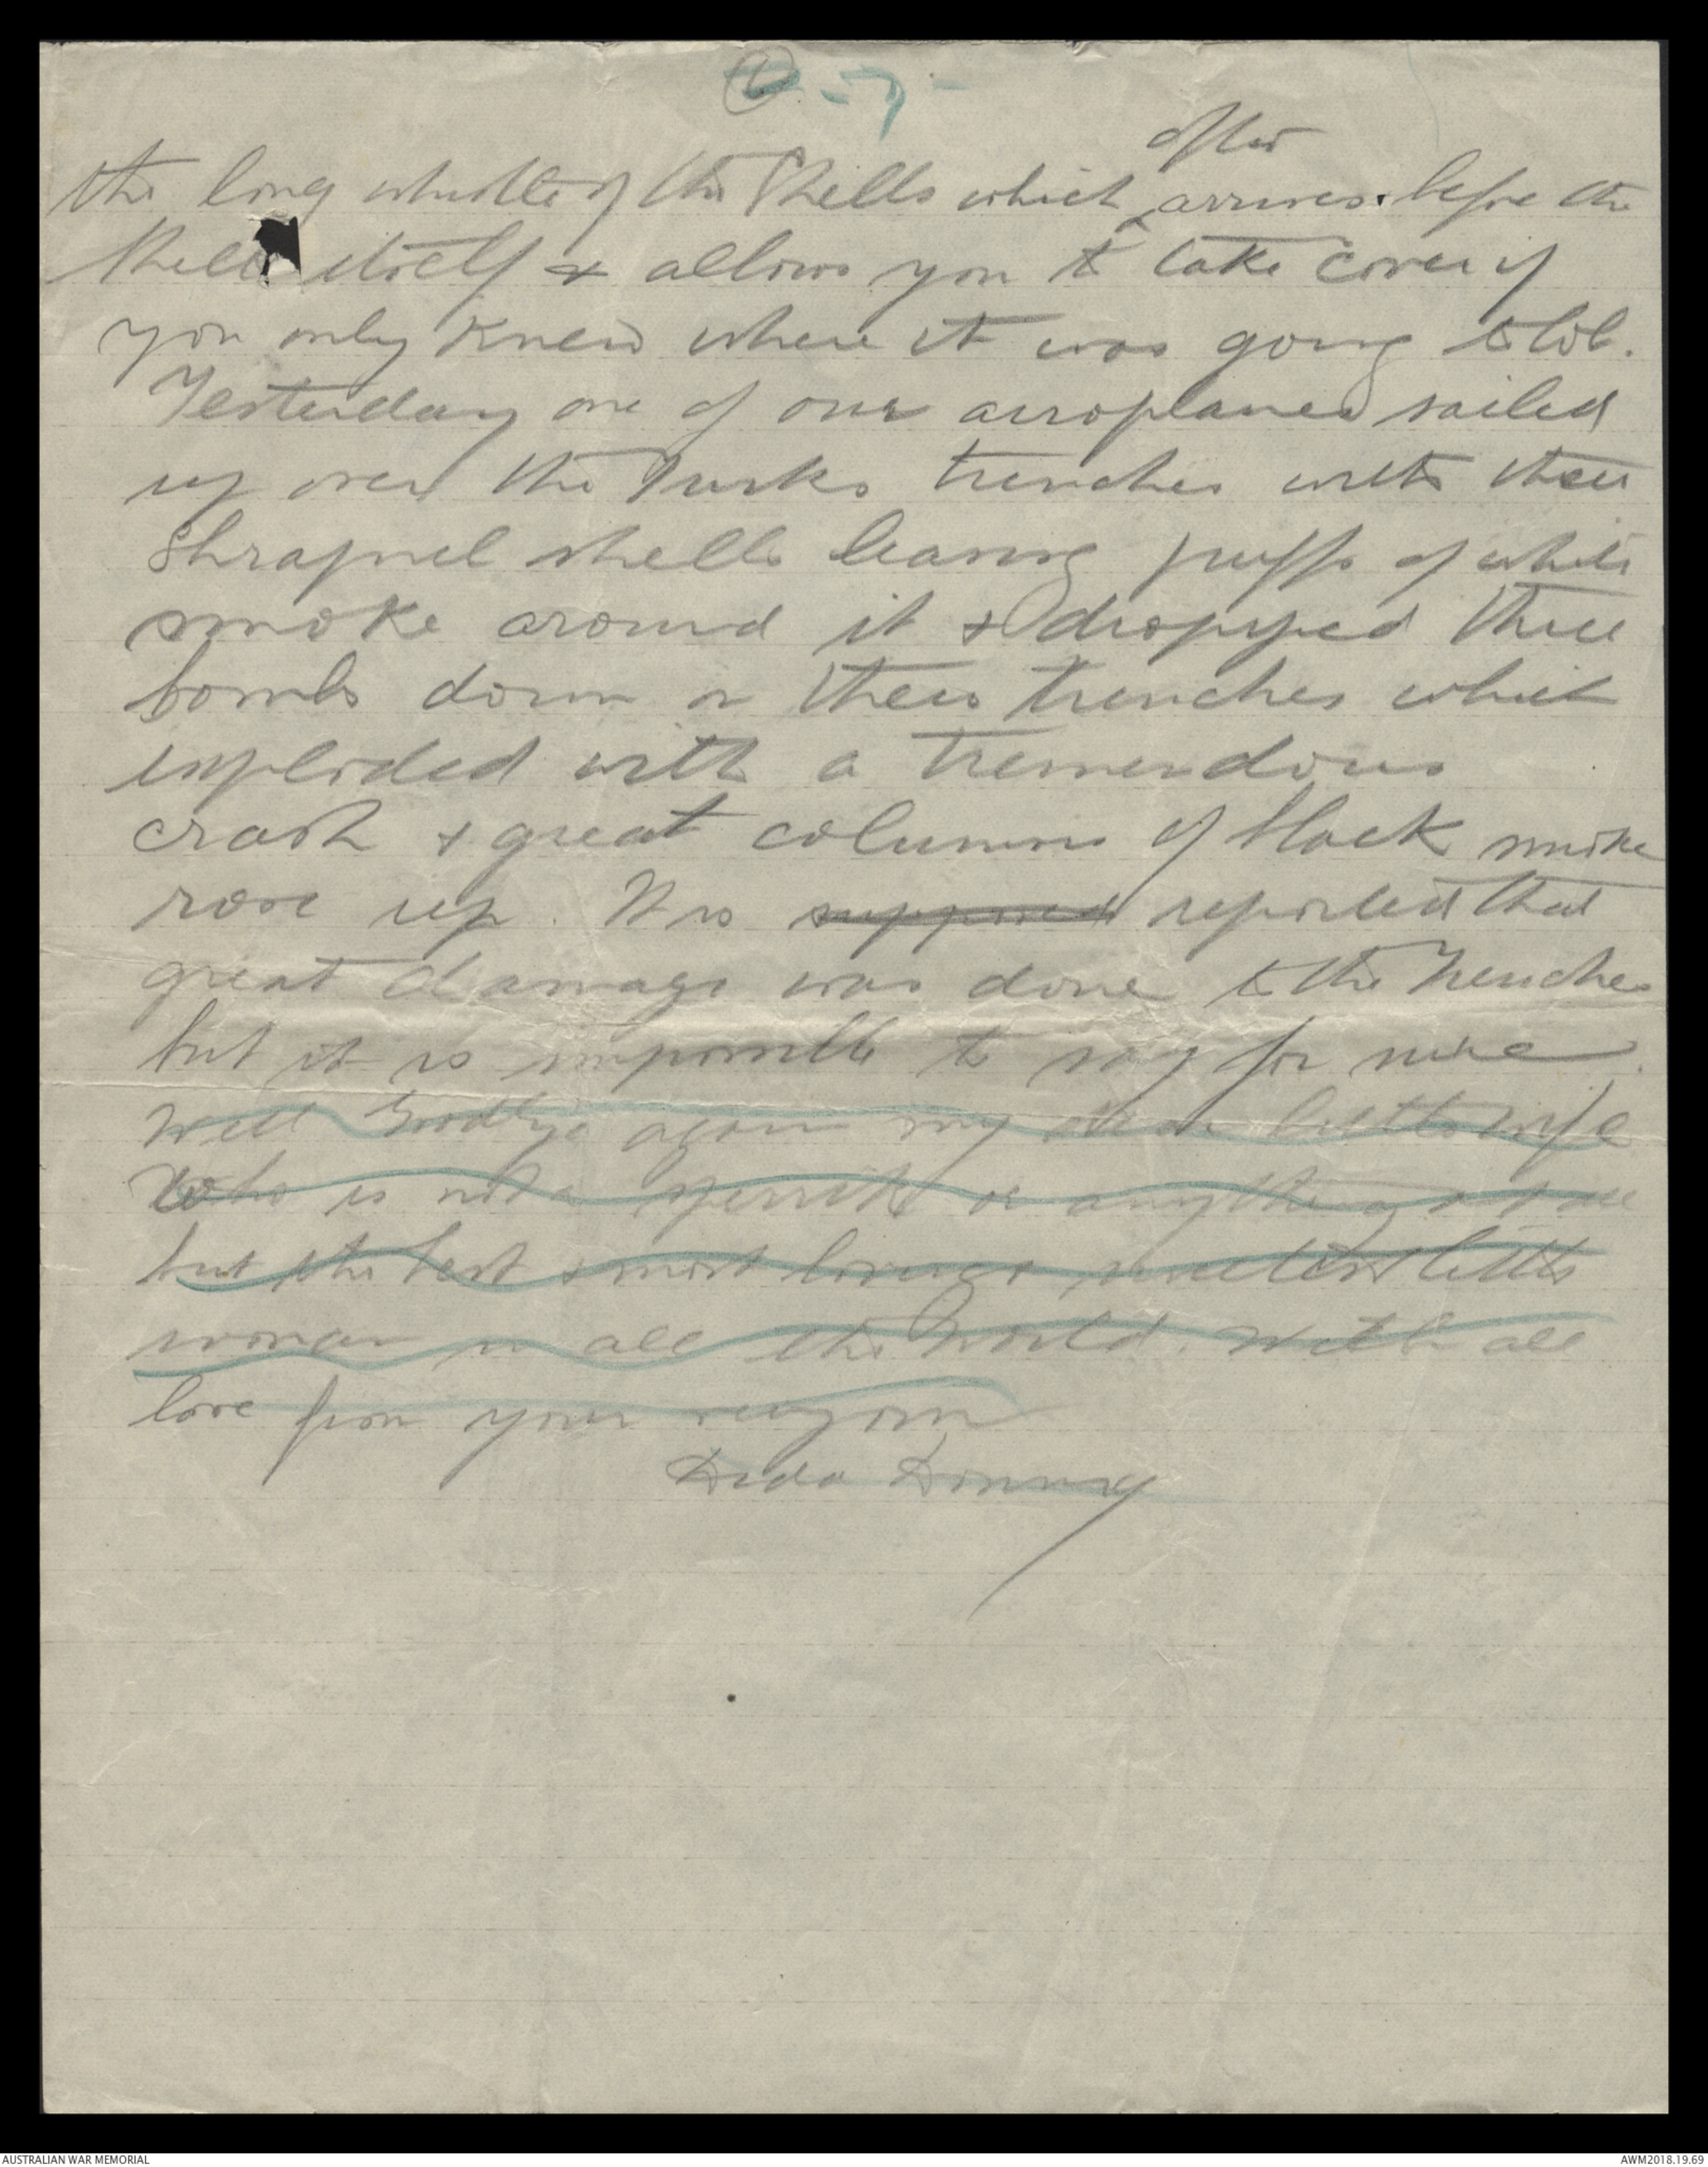 - 7 -
often
the long whistle of the Shells which ^ arrives before the
Shell itself & allows you to take cover if
you only knew where it was going to lob.
Yesterday one of our aeroplanes sailed
up over the Turks trenches with their
Shrapnel shells leaving puffs of white
smoke around it & dropped three
bombs down on their trenches which
exploded with a tremendous
crash & great columns of black smoke
rose up. It is supposed reported that
great damage was done to the trenches
but it is impossible to say for sure.
Well Goodbye again my dear little wife
who is not a or anything at all
but the best & most loving & sweetest little
woman in all the World. With all
love from your
AUSTRALIAN WAR MEMORIAL
AWM2018.19.69